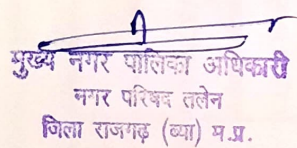 मुख्य नगर पालिका अधिकारी
नगर परिषद तलेन
जिला राजगढ़ (ब्या) म.प्र.